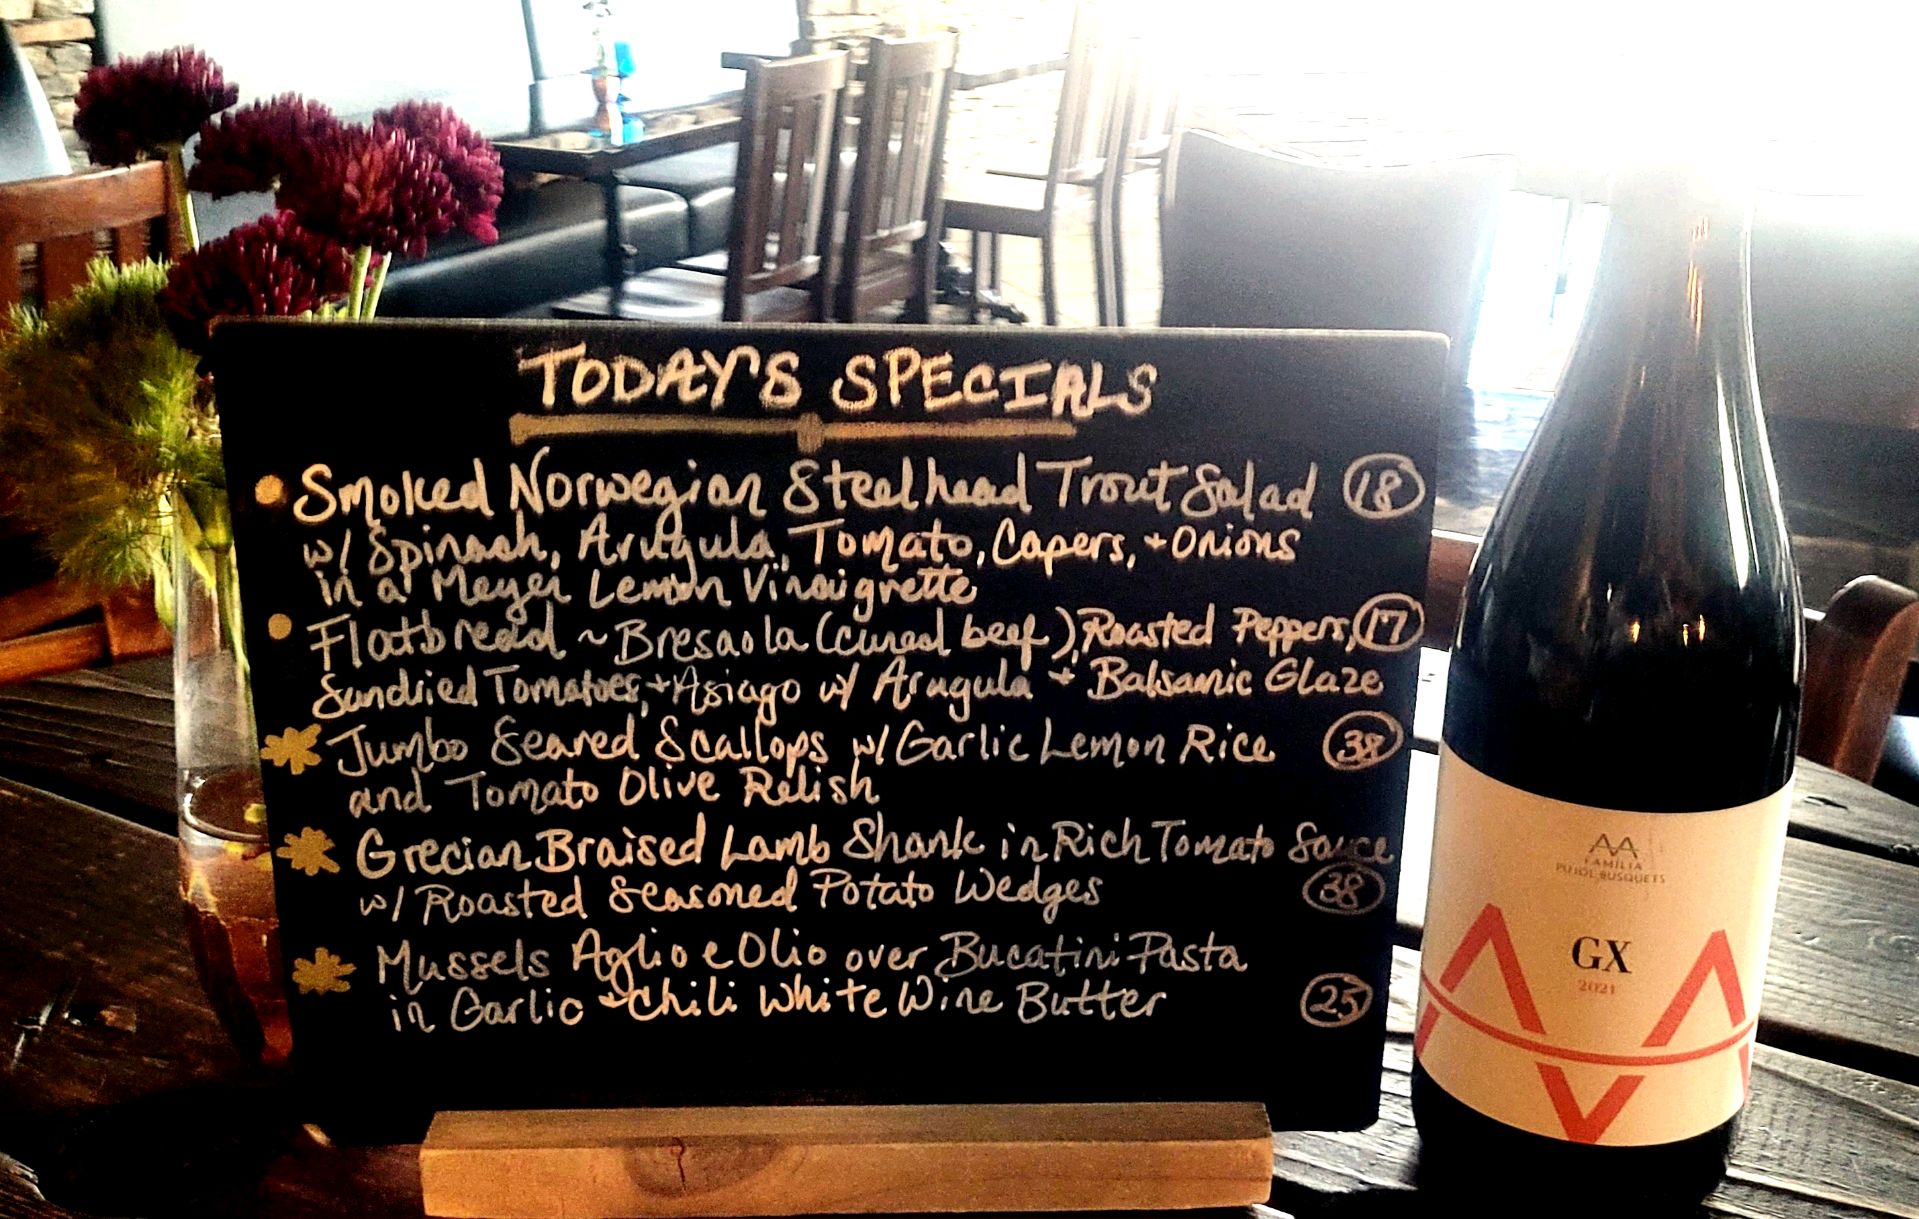 TODAY'S SPECIALS
Smoked Norwegian Steelhead Trout Salad 18
w/ Spinach, Arugula, Tomato, Capers, + Onions
in a Meyer Lemon Vinaigrette
Flatbread ~ Bresaola (cured beef), Roasted Peppers, 17
Sundried Tomatoes, + Asiago w/ Arugula + Balsamic Glaze
Jumbo Seared Scallops w/ Garlic Lemon Rice 38
and Tomato Olive Relish
Grecian Braised Lamb Shank in Rich Tomato Sauce
w/ Roasted Seasoned Potato Wedges 38
Mussels Aglio e Olio over Bucatini Pasta
in Garlic + Chili White Wine Butter 25
FAMÍLIA
PUJOL-BUSQUETS
GX
2021